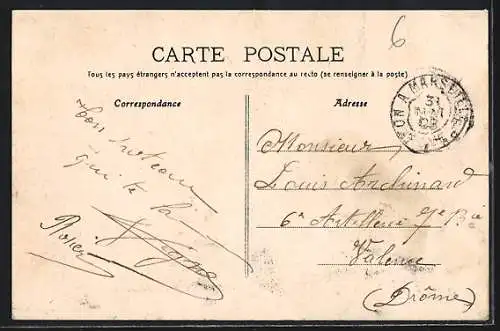 6
CARTE POSTALE
Tous les pays étrangers n'acceptent pas la correspondance au recto (se renseigner à la poste)
Correspondance
Adresse
ON A MARSEILLE
31
Ton
qui te la
Monsieur
Louis Archinard
6e Artillerie 7e Bie
Valence
(Drôme)